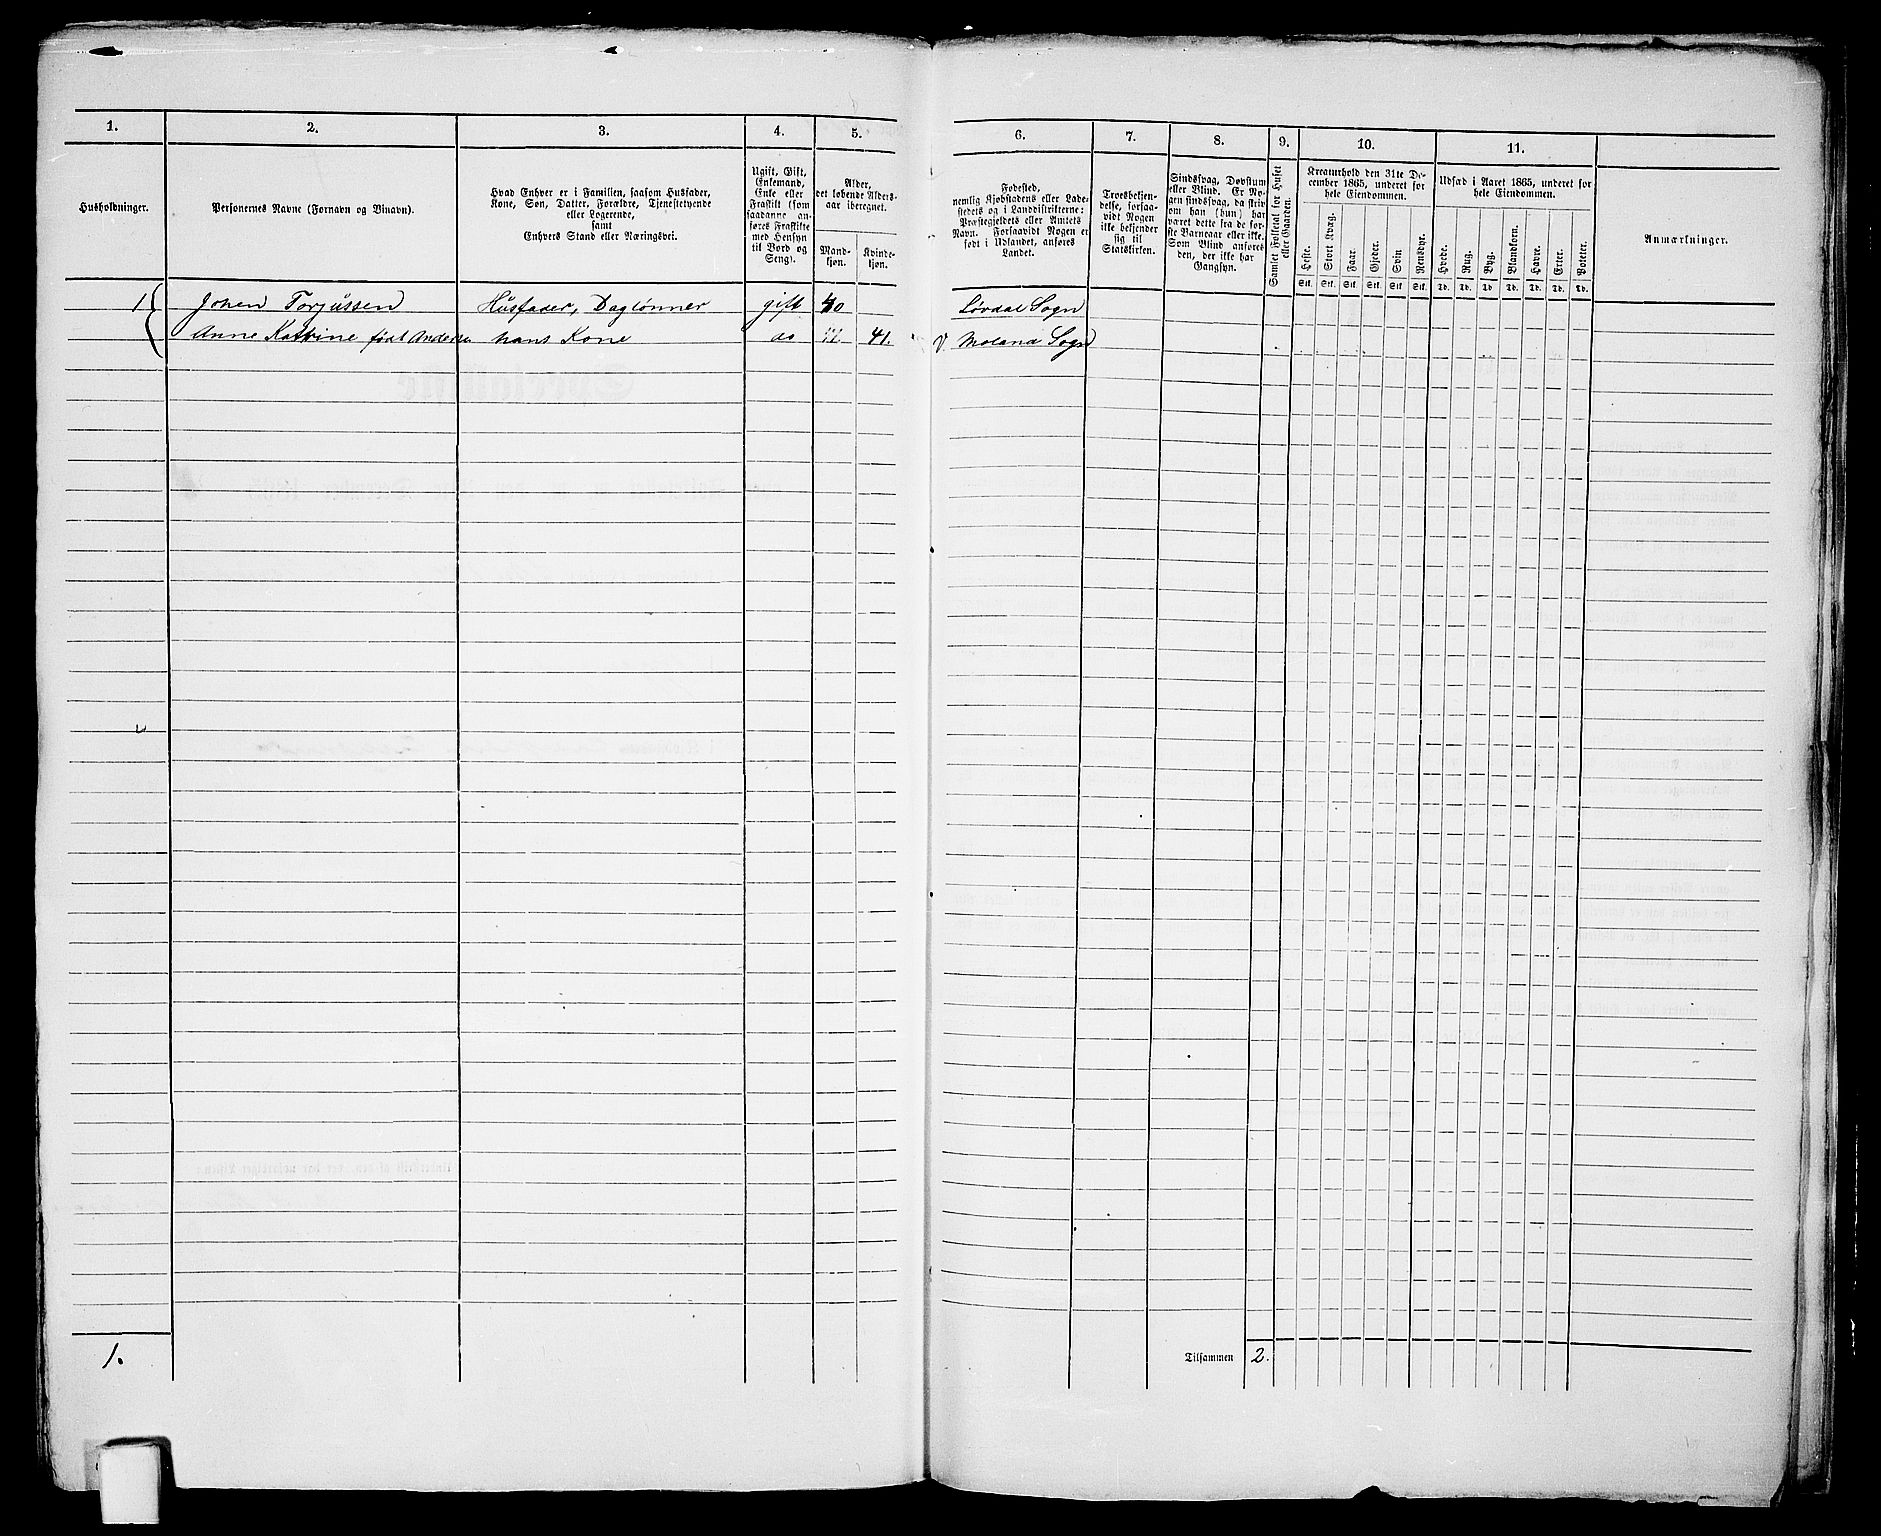 1.
2.
3.
4.
5.
Husholdninger.
Personernes Navne (Fornavn og Binavn).
Hvad Enhver er i Familien, saasom Husfader,
Kone, Søn, Datter, Forældre, Tjenestetyende
eller Logerende,
samt
Enhvers Stand eller Næringsvei.
Ugift, Gift,
Enkemand,
Enke eller
Fraskilt (som
saadanne an-
føres Fraskilte
med Hensyn
til Bord og
Seng).
Alder,
det løbende Alders-
aar iberegnet.
Mand-
kjøn.
Kvinde-
kjøn.
1 Johen Torjussen Husfader, Daglønner gift 40
Anne Katrine født Andersen hans Kone do " 41.
1.
6.
7.
8.
9.
10.
11.
Fødested,
nemlig Kjøbstadens eller Lade-
stedets og i Landdistrikterne:
Præstegjeldets eller Amtets
Navn. Forsaavidt Nogen er
født i Udlandet, anføres
Landet.
Troesbekjen-
delse, forsaa-
vidt Nogen
ikke bekjender
sig til
Statskirken.
Sindssvag, Døvstum
eller Blind. Er No-
gen sindssvag, da skriv
om han (hun) har
været dette fra de før-
ste Barneaar eller ikke.
Som Blind anføres
den, der ikke har
Gangsyn.
Samlet Folketal for Huset
eller Gaarden.
Kreaturhold den 31te De-
cember 1865, underet for
hele Eiendommen.
Heste. Stort Kvæg. Faar. Gjeder. Svin Rensdyr.
Stk. Stk. Stk. Stk. Stk Stk.
Udsæd i Aaret 1865, underet for
hele Eiendommen.
Hvede. Rug. Byg. Blandkorn. Havre. Erter. Poteter.
Td. Td. Td Td. Td. Td. Td.
Anmærkninger.
Løvdal Sogn
V. Moland Sogn
Tilsammen 2.